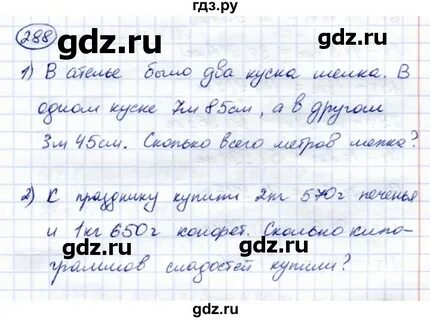 гдз.ру
288 gdz.ru gdz.ru
1) В ателье было два куска шелка. В
одном куске 7м 85см, а в другом
gdz.ru gdz.ru
3м 45см. Сколько всего метров шелка?
gdz.ru gdz.ru
2) К празднику купили 2кг 570г печенья
и 1кг 650г конфет. Сколько кило-
gdz.ru gdz.ru
граммов сладостей купили?
gdz.ru gdz.ru
гдз.ру